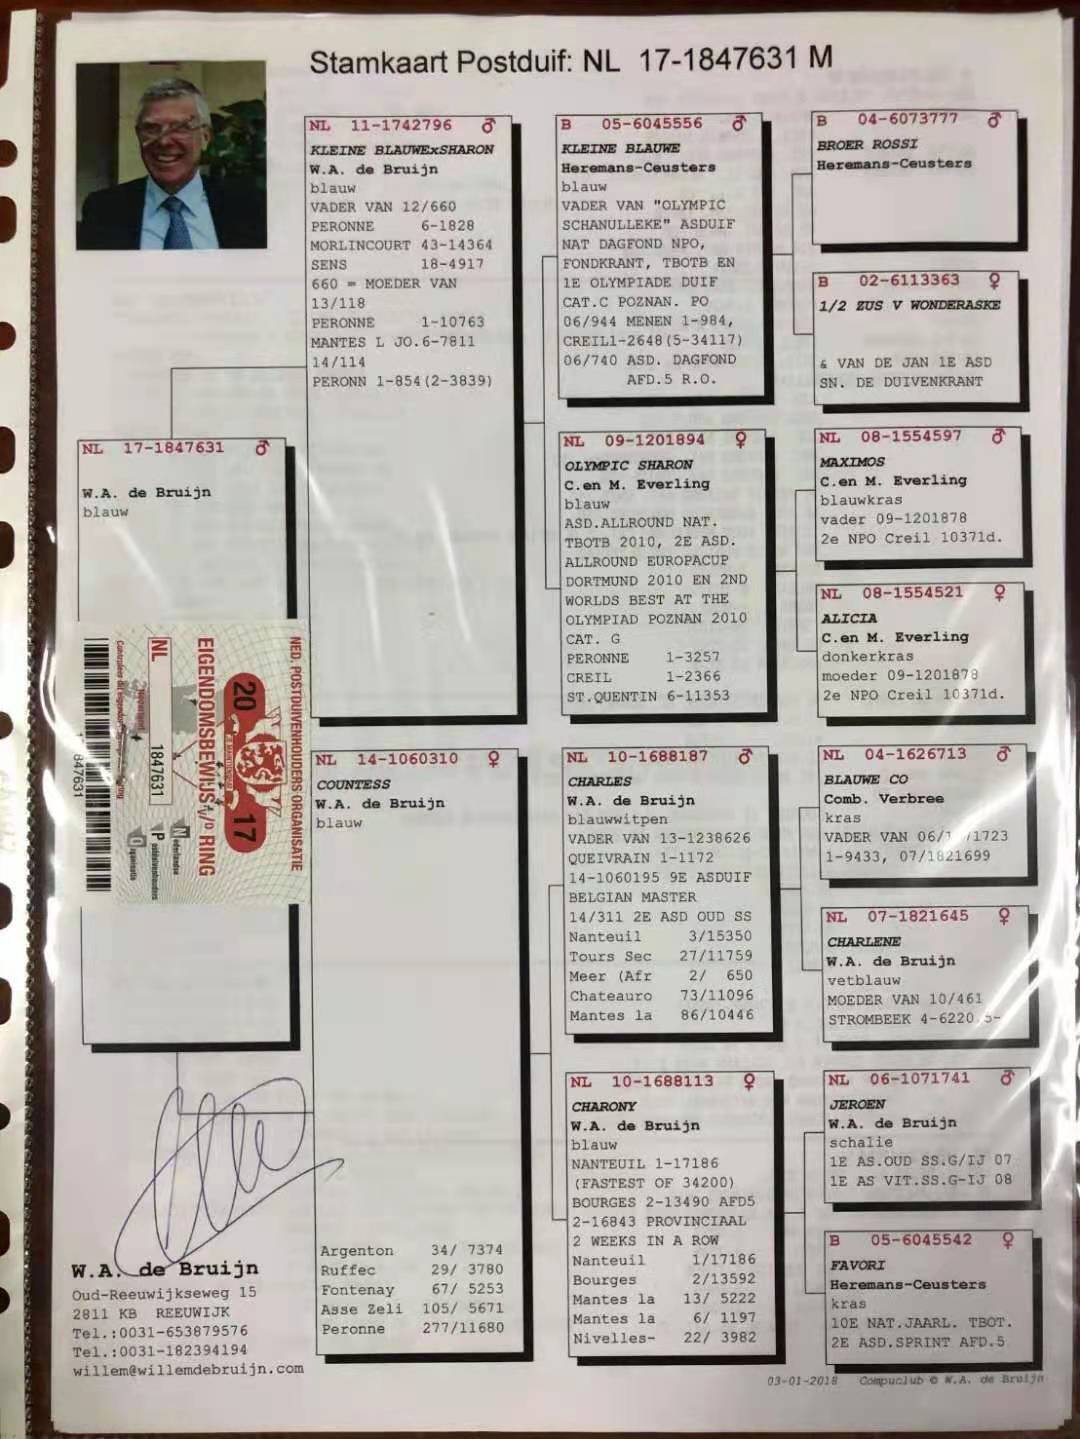 Stamkaart Postduif: NL 17-1847631 M
NL 17-1847631 ♂
W.A. de Bruijn
blauw
NED. POSTDUIVENHOUDERS ORGANISATIE
EIGENDOMSBEWIJS v/d RING
20 17
NL 1847631
Nederlandse
Postduivenhouders
Organisatie
847631
W.A. de Bruijn
Oud-Reeuwijkseweg 15
2811 KB REEUWIJK
Tel.:0031-653879576
Tel.:0031-182394194
willem@willemdebruijn.com
NL 11-1742796 ♂
KLEINE BLAUWExSHARON
W.A. de Bruijn
blauw
VADER VAN 12/660
PERONNE 6-1828
MORLINCOURT 43-14364
SENS 18-4917
660 = MOEDER VAN
13/118
PERONNE 1-10763
MANTES L JO.6-7811
14/114
PERONN 1-854(2-3839)
NL 14-1060310 ♀
COUNTESS
W.A. de Bruijn
blauw
Argenton 34/ 7374
Ruffec 29/ 3780
Fontenay 67/ 5253
Asse Zeli 105/ 5671
Peronne 277/11680
B 05-6045556 ♂
KLEINE BLAUWE
Heremans-Ceusters
blauw
VADER VAN "OLYMPIC
SCHANULLEKE" ASDUIF
NAT DAGFOND NPO,
FONDKRANT, TBOTB EN
1E OLYMPIADE DUIF
CAT.C POZNAN. PO
06/944 MENEN 1-984,
CREIL1-2648(5-34117)
06/740 ASD. DAGFOND
AFD.5 R.O.
NL 09-1201894 ♀
OLYMPIC SHARON
C.en M. Everling
blauw
ASD.ALLROUND NAT.
TBOTB 2010, 2E ASD.
ALLROUND EUROPACUP
DORTMUND 2010 EN 2ND
WORLDS BEST AT THE
OLYMPIAD POZNAN 2010
CAT. G
PERONNE 1-3257
CREIL 1-2366
ST.QUENTIN 6-11353
NL 10-1688187 ♂
CHARLES
W.A. de Bruijn
blauwwitpen
VADER VAN 13-1238626
QUEIVRAIN 1-1172
14-1060195 9E ASDUIF
BELGIAN MASTER
14/311 2E ASD OUD SS
Nanteuil 3/15350
Tours Sec 27/11759
Meer (Afr 2/ 650
Chateauro 73/11096
Mantes la 86/10446
NL 10-1688113 ♀
CHARONY
W.A. de Bruijn
blauw
NANTEUIL 1-17186
(FASTEST OF 34200)
BOURGES 2-13490 AFD5
2-16843 PROVINCIAAL
2 WEEKS IN A ROW
Nanteuil 1/17186
Bourges 2/13592
Mantes la 13/ 5222
Mantes la 6/ 1197
Nivelles- 22/ 3982
B 04-6073777 ♂
BROER ROSSI
Heremans-Ceusters
B 02-6113363 ♀
1/2 ZUS V WONDERASKE
& VAN DE JAN 1E ASD
SN. DE DUIVENKRANT
NL 08-1554597 ♂
MAXIMOS
C.en M. Everling
blauwkras
vader 09-1201878
2e NPO Creil 10371d.
NL 08-1554521 ♀
ALICIA
C.en M. Everling
donkerkras
moeder 09-1201878
2e NPO Creil 10371d.
NL 04-1626713 ♂
BLAUWE CO
Comb. Verbree
kras
VADER VAN
1-9433, 07/1821699
NL 07-1821645 ♀
CHARLENE
W.A. de Bruijn
vetblauw
MOEDER VAN 10/461
STROMBEEK 4-6220
NL 06-1071741 ♂
JEROEN
W.A. de Bruijn
schalie
1E AS.OUD SS.G/IJ 07
1E AS VIT.SS.G-IJ 08
B 05-6045542 ♀
FAVORI
Heremans-Ceusters
kras
10E NAT.JAARL. TBOT.
2E ASD.SPRINT AFD.5
03-01-2018 Compuclub © W.A. de Bruijn